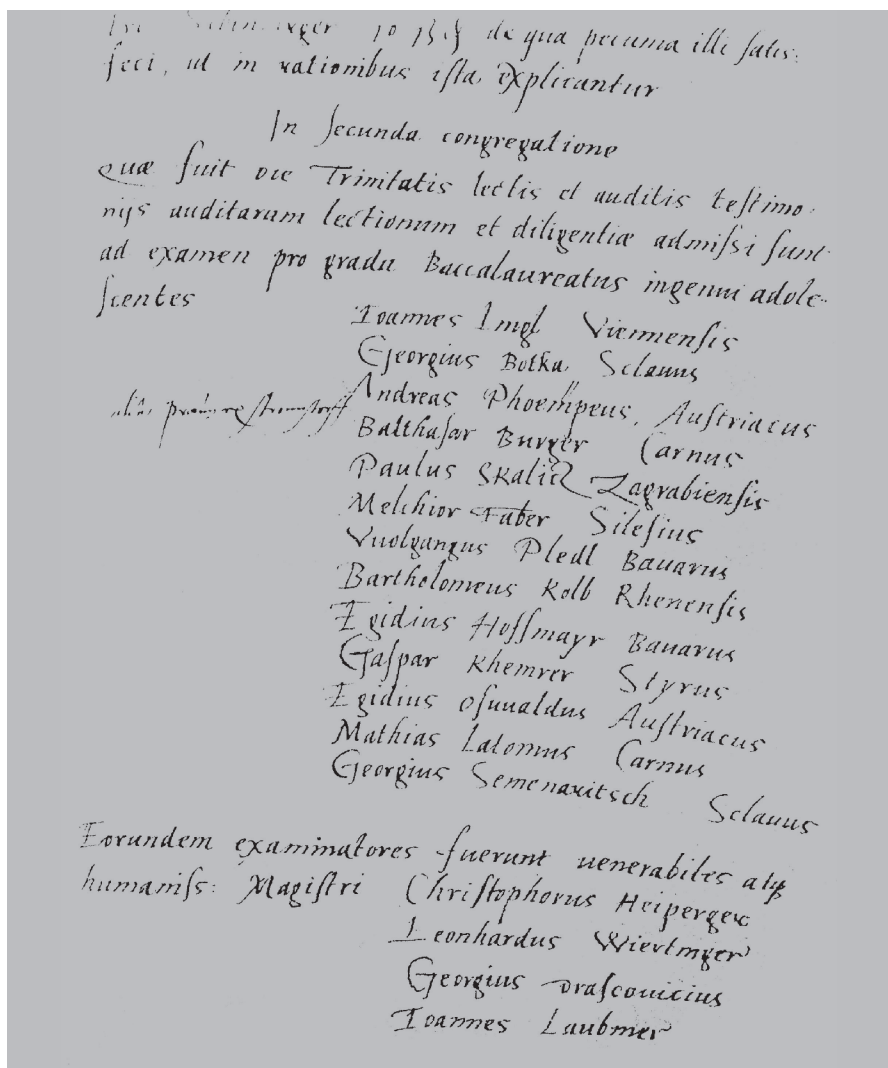 de qua pecunia illi satis-
feci, ut in rationibus ista explicantur
In secunda congregatione
quæ fuit die Trinitatis lectis et auditis testimo-
nijs auditarum lectionum et diligentiæ admissi sunt
ad examen pro gradu Baccalaureatus ingenui adole-
scentes
Ioannes Imgl Viennensis
Georgius Botka Sclauus
Andreas Phoempeus, Austriacus
Balthasar Burger Carnus
Paulus Skalicz Zagrabiensis
Melchior Faber Silesius
Vuolgangus Pledl Bauarus
Bartholomeus Kolb Rhenensis
Egidius Hoffmayr Bauarus
Gaspar Khemrer Styrus
Egidius Osuualdus Austriacus
Mathias Latomus Carnus
Georgius Semenauitsch Sclauus
Eorundem examinatores fuerunt uenerabiles atq
humaniss: Magistri Christophorus Heiperger
Leonhardus
Georgius Drascouicius
Ioannes Laubmer